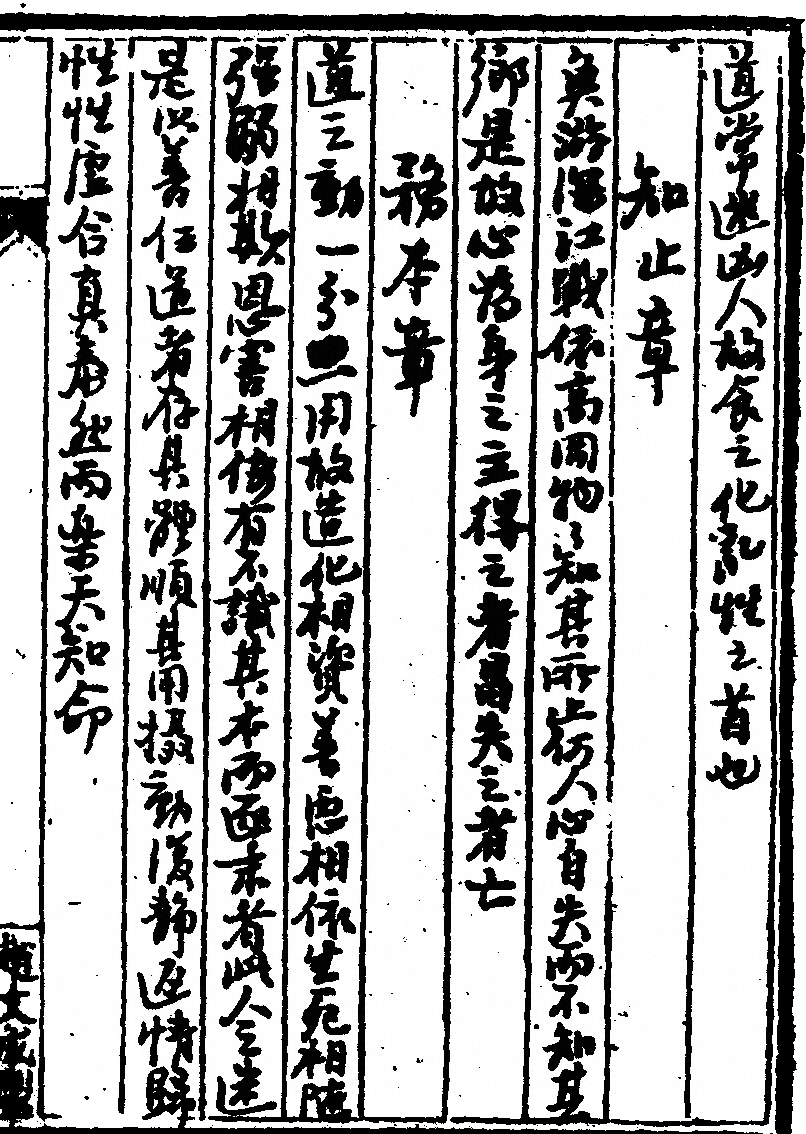 道常遊凶人放食之化亂性之首也
知止章
魚游深江戰依高岡物〻知其所止何人心自失而不知其
鄉是故心為身之主得之者昌失之者亡
務本章
道之動一分無用故造化相資善惡相依生死相隨
强弱相欺恩害相傷有不識其本而區末者此人之迷
是以善任道者存其體順其用攝動復静返情歸
性性虛合真孝然而樂天知命